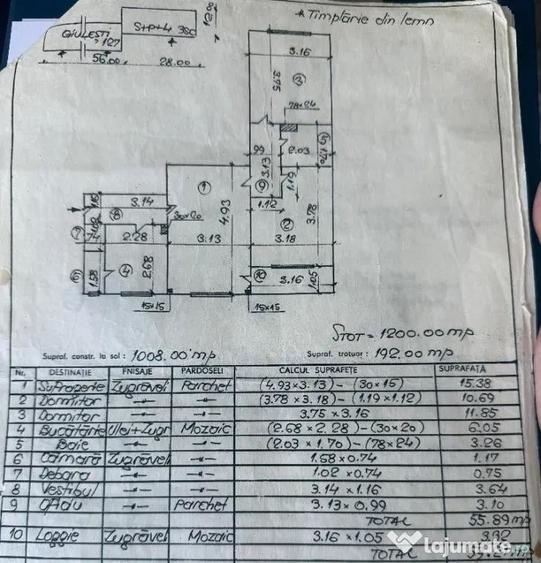 * Timplărie din lemn
GIULEȘTI
127
S+P+4 3SC
12.8
56.00 28.00
3.16
3.75
3
78x24
99
3.13
2.03
5
1.70
9
1.19
1.12
2
3.78
3.18
1
4.93
3.13
3.14
8
30x20
7
74
2.28
6
1.58
4
2.68
10
3.16
1.05
15x15 15x15
STOT = 1200.00 mp
Supraf. constr. la sol : 1008.00 mp Supraf. trotuar : 192.00 mp
Nr. DESTINAȚIE FINISAJE PARDOSELI CALCUL SUPRAFETE SUPRAFATĂ
1 Sufragerie Zugrăveli Parchet (4.93x3.13)-(30x15) 15.38
2 Dormitor -"- -"- (3.78x3.18)-(1.19x1.12) 10.69
3 Dormitor -"- -"- 3.75x3.16 11.85
4 Bucătărie Ulei+Zugr Mozaic (2.68x2.28)-(30x20) 6.05
5 Baie -"- -"- (2.03x1.70)-(78x24) 3.26
6 Cămară Zugrăveli -"- 1.58x0.74 1.17
7 Debara -"- -"- 1.02x0.74 0.75
8 Vestibul -"- -"- 3.14x1.16 3.64
9 Hol -"- Parchet 3.13x0.99 3.10
TOTAL 55.89 mp
10 Loggie Zugrăveli Mozaic 3.16x1.05 3.32
TOTAL
lajumate.ro